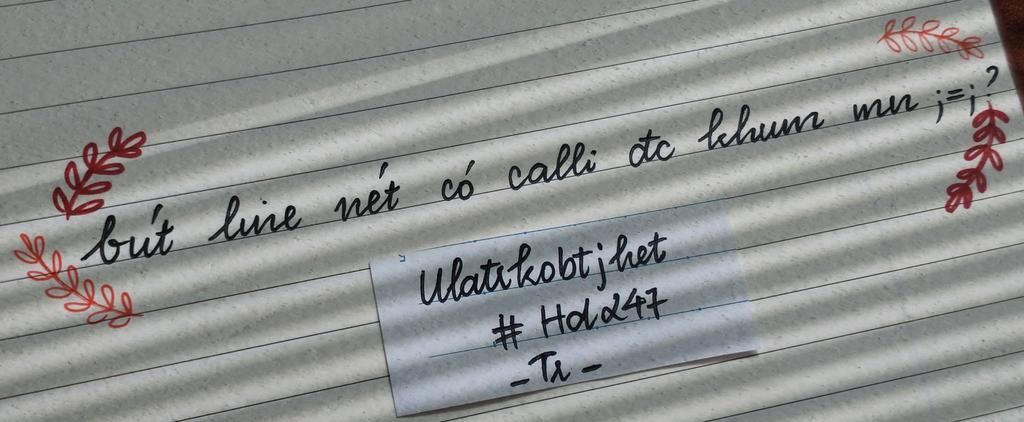 bút line nét có calli đc khum mn ;=;?
Ulatrkobtjhet
# Hdα247
- Tr -